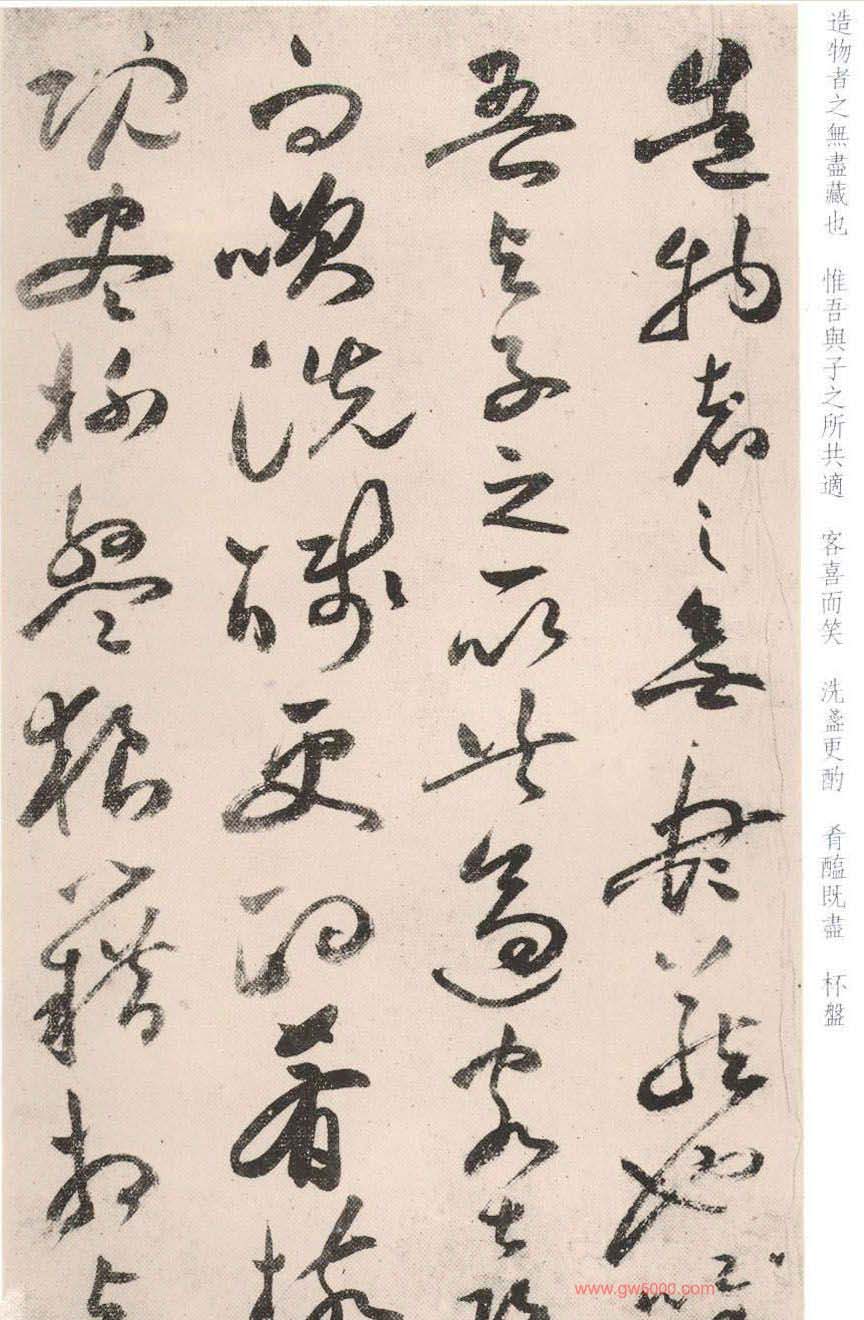 造物者之無盡藏也 惟吾與子之所共適 客喜而笑 洗盞更酌 肴醢既盡 杯盤
造物者之無盡藏也
吾與子之所共適客
而咲洗醆更酌肴核
既盡杯盤狼藉相與
www.gw5000.com